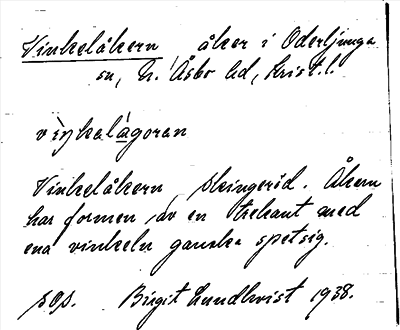 Vinkelåkern åker i Oderljunga
sn, N. Åsbo hd, Krist. l.
viŋkelågoran
Vinkelåkern, Skingeröd. Åkern
har formen av en trekant med
ena vinkeln ganska spetsig.
sgs. Birgit Lundkvist 1938.